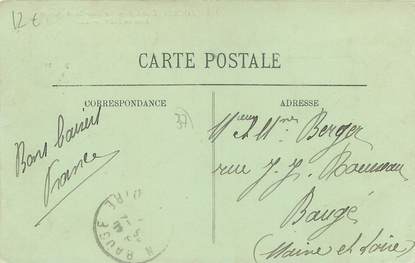 12€
CARTE POSTALE
CORRESPONDANCE
ADRESSE
37
Bons baisers
France
Mr et Mme Berger
rue J. J. Rousseau
Baugé
(Maine et Loire)
BAUGÉ